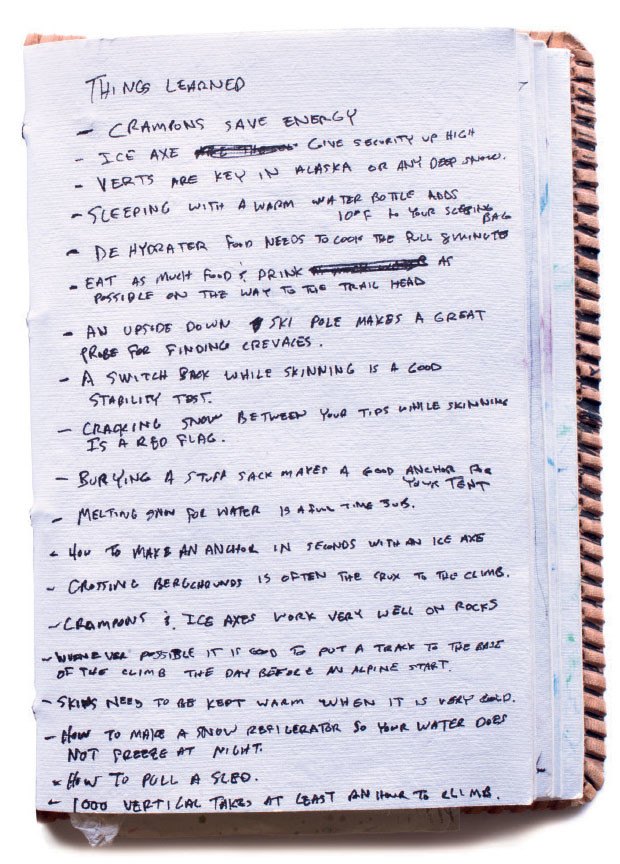 THINGS LEARNED
- CRAMPONS SAVE ENERGY
- ICE AXE GIVE SECURITY UP HIGH
- VERTS ARE KEY IN ALASKA OR ANY DEEP SNOW.
- SLEEPING WITH A WARM WATER BOTTLE ADDS
10°F to YOUR SLEEPING
BAG
- DE HYDRATER FOOD NEEDS TO COOK THE FULL 8 MINUTE
- EAT AS MUCH FOOD & DRINK AS
POSSIBLE ON THE WAY TO THE TRAIL HEAD
- AN UPSIDE DOWN SKI POLE MAKES A GREAT
PROBE FOR FINDING CREVACES.
- A SWITCH BACK WHILE SKINNING IS A GOOD
STABILITY TEST.
- CRACKING SNOW BETWEEN YOUR TIPS WHILE SKINNING
IS A RED FLAG.
- BURYING A STUFF SACK MAKES A GOOD ANCHOR FOR
YOUR TENT
- MELTING SNOW FOR WATER IS A FULL TIME JOB.
- HOW TO MAKE AN ANCHOR IN SECONDS WITH AN ICE AXE
- CROSSING BERGCHOUNDS IS OFTEN THE CRUX TO THE CLIMB.
- CRAMPONS & ICE AXES WORK VERY WELL ON ROCKS
- WHENEVER POSSIBLE IT IS GOOD TO PUT A TRACK TO THE BASE
OF THE CLIMB THE DAY BEFORE AN ALPINE START.
- SKINS NEED TO BE KEPT WARM WHEN IT IS VERY COLD.
- HOW TO MAKE A SNOW REFILERATOR SO YOUR WATER DOES
NOT FREEZE AT NIGHT.
- HOW TO PULL A SLED.
- 1000 VERTICAL TAKES AT LEAST AN HOUR TO CLIMB.